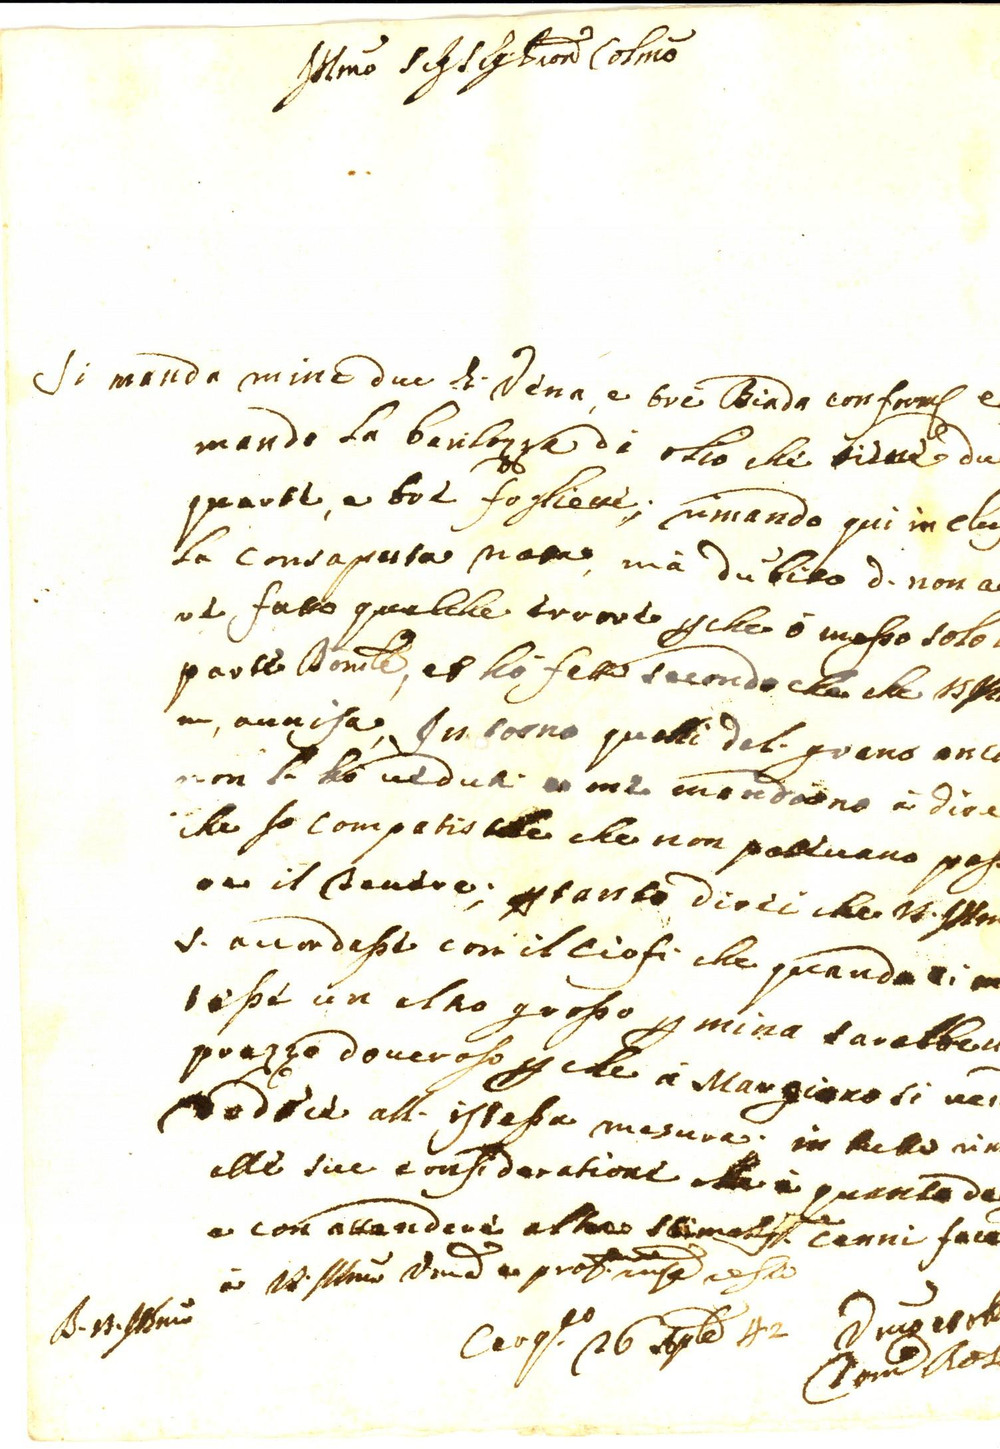 Illmo Sig Sig Pron Colmo
Si manda mine due di Vena, e tre Biada conforme e
mando la barilozza di olio che tiene due
quarte, e tre fogliette; rimando qui in clu
la consaputa nota, mà dubito di non a
ve fatto qualche errore pche ò messo solo
parte Domle, et hò fatto secondo che che V.S. Ill
m, auuisa, In torno quelli del grano anco
non li hò ueduti e me mandorno à dire
che so compatis che non poteuano pass
re il Teuere; ptanto direi che V. Illm
s. accordasse con il Ciofi che quando si m
tesse un altro grosso p mina sarebbe u
prezzo doueroso p che à Margiano si uen
dodici all' istessa mesura. in tutto rim
alle sue consideratione che è quanto de
e con attendere altre stimatss. cenni facc
à V. Illma Vma e prof. riuza resto
B. V. Illma
26 42